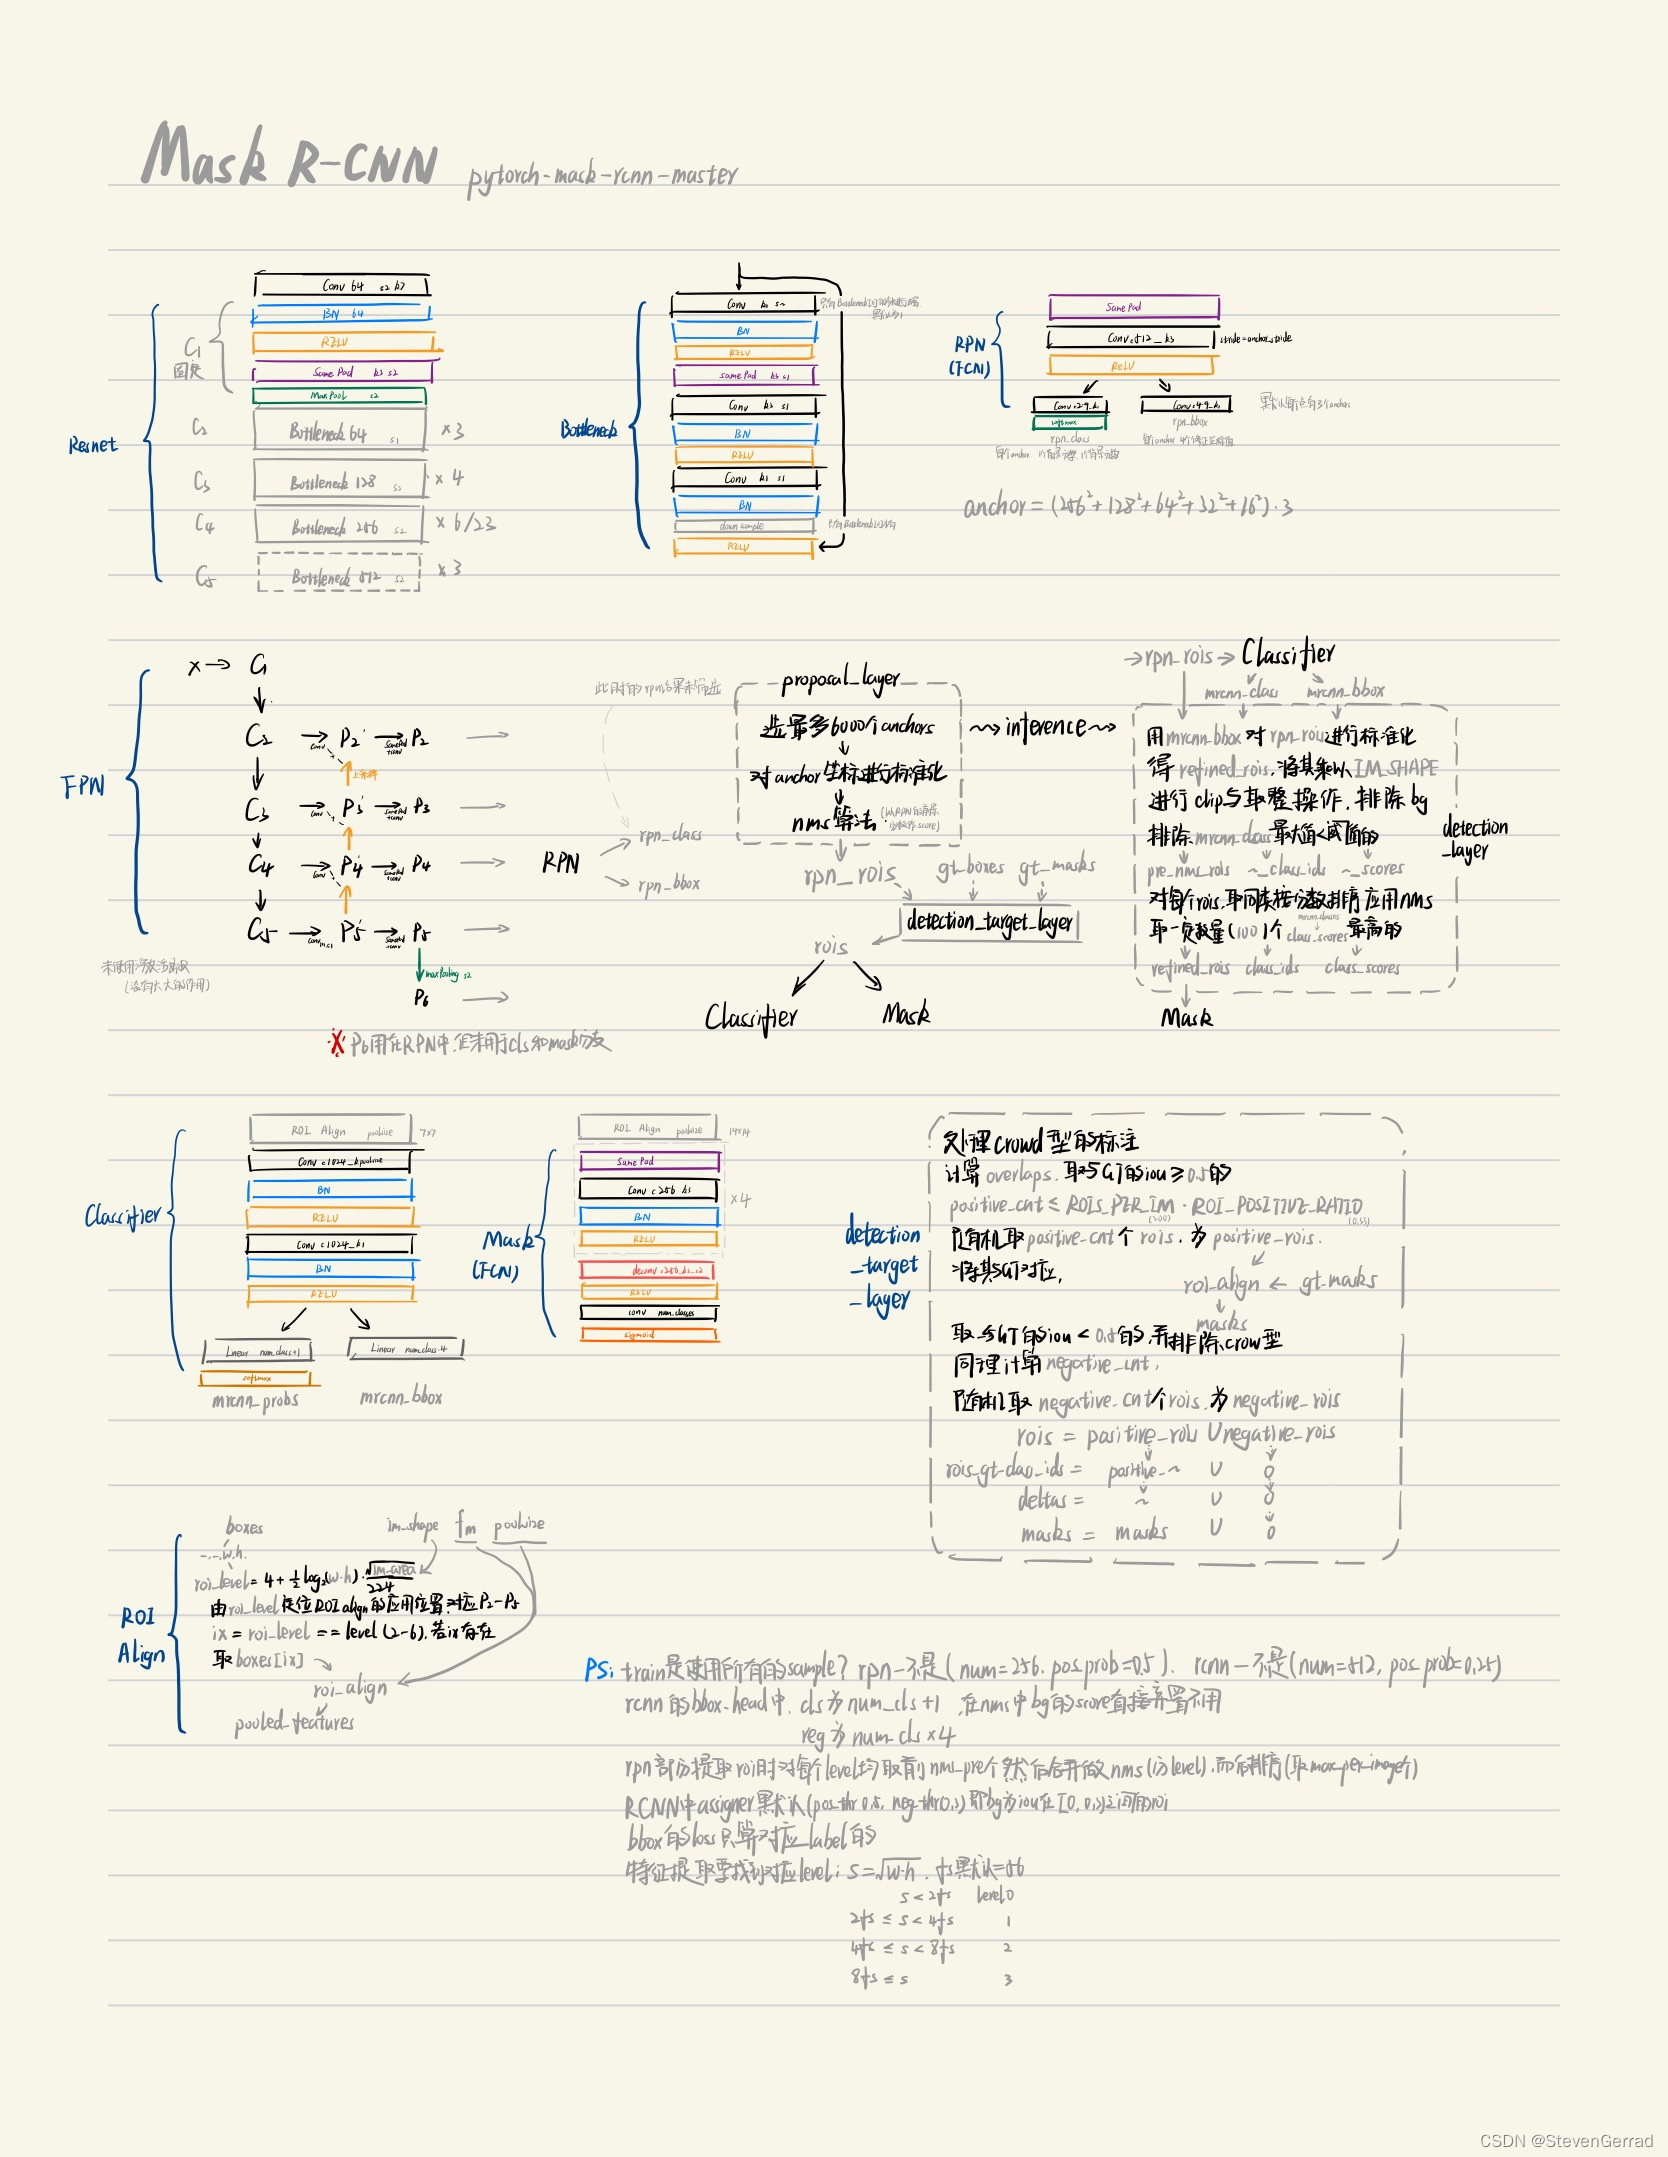 Mask R-CNN pytorch-mask-rcnn-master
Resnet
C1
固定
Conv 64 s2 k7
BN 64
RELU
Same Pad k3 s2
MaxPool s2
C2 Bottleneck 64 s1 ×3
C3 Bottleneck 128 s2 ×4
C4 Bottleneck 256 s2 ×6/23
C5 Bottleneck 512 s2 ×3
Bottleneck
Conv k1 s~
BN
RELU
Same Pad k3 s1
Conv k3 s1
BN
RELU
Conv k1 s1
BN
downsample
RELU
RPN
(FCN)
Same Pad
Conv c512_k3 stride=anchor_stride
ReLU
Conv c2*9_k1
softmax
rpn_class
Conv c4*9_k1
rpn_bbox
默认每点有3个anchor
anchor = (256²+128²+64²+32²+16²)·3
FPN
x → C1
C2 → conv P2' → Same Pad +conv P2
上采样
C3 → conv P3' → Same Pad +conv P3
C4 → conv P4' → Same Pad +conv P4
C5 → P5' → Same Pad +conv P5
maxPooling s2
P6
(没有太大的作用)
※ P6用在RPN中,但未用于cls和mask分支
此时的rpn结果未筛选
RPN
rpn_class
rpn_bbox
proposal_layer
选最多6000个anchors
对anchor坐标进行标准化
nms算法.
rpn_rois gt_boxes gt_masks
detection_target_layer
rois
Classifier Mask
inference
→ rpn_rois → Classifier
mrcnn_class mrcnn_bbox
用mrcnn_bbox对rpn_rois进行标准化
得refined_rois,将其乘以IM_SHAPE
进行clip与取整操作,排除bg
排除mrcnn_class最大值<阈值的
pre_nms_rois ~_class_ids ~_scores
对每个rois,取同类按分数排序应用nms
取一定数量(100)个class_scores最高的
refined_rois class_ids class_scores
detection
_layer
Mask
Classifier
ROI Align poolsize 7×7
Conv c1024_kpoolsize
BN
RELU
Conv c1024_k1
BN
RELU
Linear num_class+1
softmax
mrcnn_probs
Linear num_class·4
mrcnn_bbox
Mask
(FCN)
ROI Align poolsize 14×14
Same Pad
Conv c256 k3
BN
RELU
×4
deconv c256_k2_s2
RELU
conv num_classes
sigmoid
detection
_target
_layer
处理crowd型的标注
计算overlaps,取与GT的iou≥0.5的
positive_cnt ≤ ROIS_PER_IM(200) · ROI_POSITIVE_RATIO(0.33)
随机取positive_cnt个rois,为positive_rois.
将其与GT对应,
roi_align ← gt_masks
masks
取与GT的iou<0.5的,再排除crow型
同理计算negative_cnt,
随机取negative_cnt个rois,为negative_rois
rois = positive_rois ∪ negative_rois
rois_gt_class_ids = positive_~ ∪ 0
deltas = ~ ∪ 0
masks = masks ∪ 0
ROI
Align
boxes im_shape fm poolsize
~,~,w,h.
roi_level = 4 + ½log₂(w·h)·√im_area/224
由roi_level定位ROI align的应用位置,对应P2-P5
ix = roi_level == level (2-6),若ix存在
取boxes[ix]
roi_align
pooled_features
PS: train是使用所有的sample? rpn-不是(num=256, pos prob=0.5). rcnn-不是(num=512, pos prob=0.25)
rcnn的bbox_head中,cls为num_cls+1,在nms中bg的score直接弃置不用
reg为num_cls×4
rpn部分提取roi时对每个level均取前nms_pre个然后合并做nms(分level),而后排序(取max_per_image个)
RCNN中assigner默认(pos_thr 0.5, neg_thr 0.5)即bg为iou在[0, 0.5)之间的roi
bbox的loss只算对应label的
特征提取要找到对应level; s=√w·h, fs默认=56
s < 2fs level 0
2fs ≤ s < 4fs 1
4fs ≤ s < 8fs 2
8fs ≤ s 3
CSDN @StevenGerrad